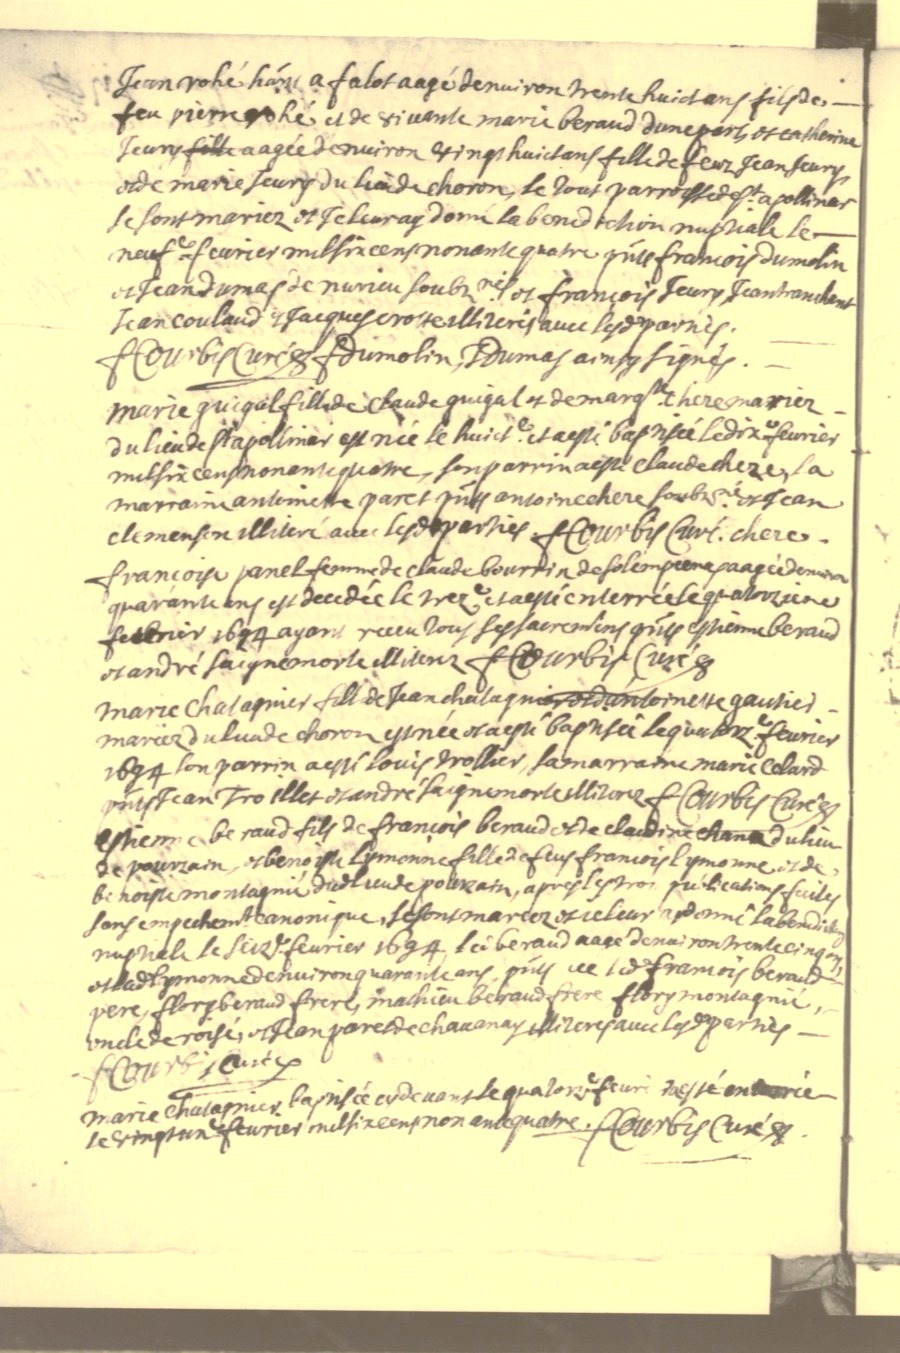 Jean rohé hãnt a falot aagé denviron trente huict ans fils de
feu pierre rohé et de vivante marie beraud dune part, et catherine
Jeury fille aagée denviron vingt huict ans fille de feuz Jean Jeury
et de marie Jeury du lieu de choron, le tout parroisse de st apollinar
se sont mariez et Je leur ay donné la benediction nuptiale le
neufe fevrier mil six cens nonante quatre pñts francois dumolin
et Jean dumas de nurieu soubz nes et francois Jeury Jean tranchant
Jean coulaud et Jacques crotte illiterés avec lesd parties.
f Courbis Curé f Dumolin, J Dumas ainsy signés.
marie guigal fille de Claude guigal et de margte chere mariez
du lieu de st apollinar est née le huicte et a esté baptisée le dixe fevrier
mil six cens nonante quatre, son parrin a esté Claude chere, la
marraine antoinette paret pñts antoine chere soubzne et Jean
clemenson illiteré avec lesd parties. f Courbis Curé. chere.
francoise panel femme de claude bourrin de aagée denviron
quarante ans est decedée le treze et a esté enterrée le quatorzieme
fevrier 1694 ayant receu tous ses sacremens pñts estienne beraud
et andré saignemorte illiterez f Courbis Curé
marie chatagnier fille de Jean chatagnier et dantoinette gautier
mariez du lieu de choron est née et a esté baptisée le quatorze fevrier
1694 son parrin a esté louis trollier, la marraine marie Clard
pñts Jean Troillet et andré saignemorte illiterez f Courbis Curé
estienne beraud fils de francois beraud et de claudine chana du lieu
de pourzain, et benoiste lymonne fille de feus francois lymonne, et de
benoiste montagnié dud lieu de pourzain, apres les trois publications faites
sans empechemt canonique, se sont mariez et ie leur ay donné la benediction
nuptiale le seize fevrier 1694, led beraud aagé denviron trente cinq ans,
et lad lymonne denviron quarante ans, pñts led francois beraud
pere, flory beraud frere, mathieu beraud frere flory montagnié,
oncle de roisé, et Jean paret de chavanay illiterés avec lesd parties
f Courbis Curé
marie Chatagnier baptisée cy devant le quatorze fevri a esté enterrée
le vingt une fevrier mil six cens nonante quatre. f Courbis Curé.